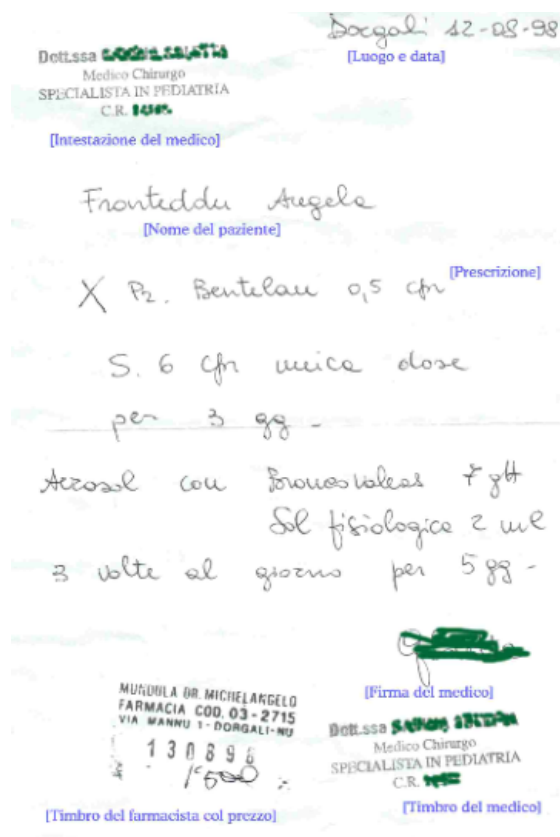 Dorgali 12-08-98
[Luogo e data]
Dott.ssa
Medico Chirurgo
SPECIALISTA IN PEDIATRIA
C.R.
[Intestazione del medico]
Fronteddu Angela
[Nome del paziente]
[Prescrizione]
X P2. Bentelan 0,5 cpr
S. 6 cpr unica dose
per 3 gg -
Aerosol con Broncovaleas 7 gtt
Sol fisiologica 2 ml
3 volte al giorno per 5 gg -
[Firma del medico]
MUNDULA DR. MICHELANGELO
FARMACIA COD. 03-2715
VIA MANNU 1-DORGALI-NU
130898
1500
[Timbro del farmacista col prezzo]
Dott.ssa
Medico Chirurgo
SPECIALISTA IN PEDIATRIA
C.R.
[Timbro del medico]